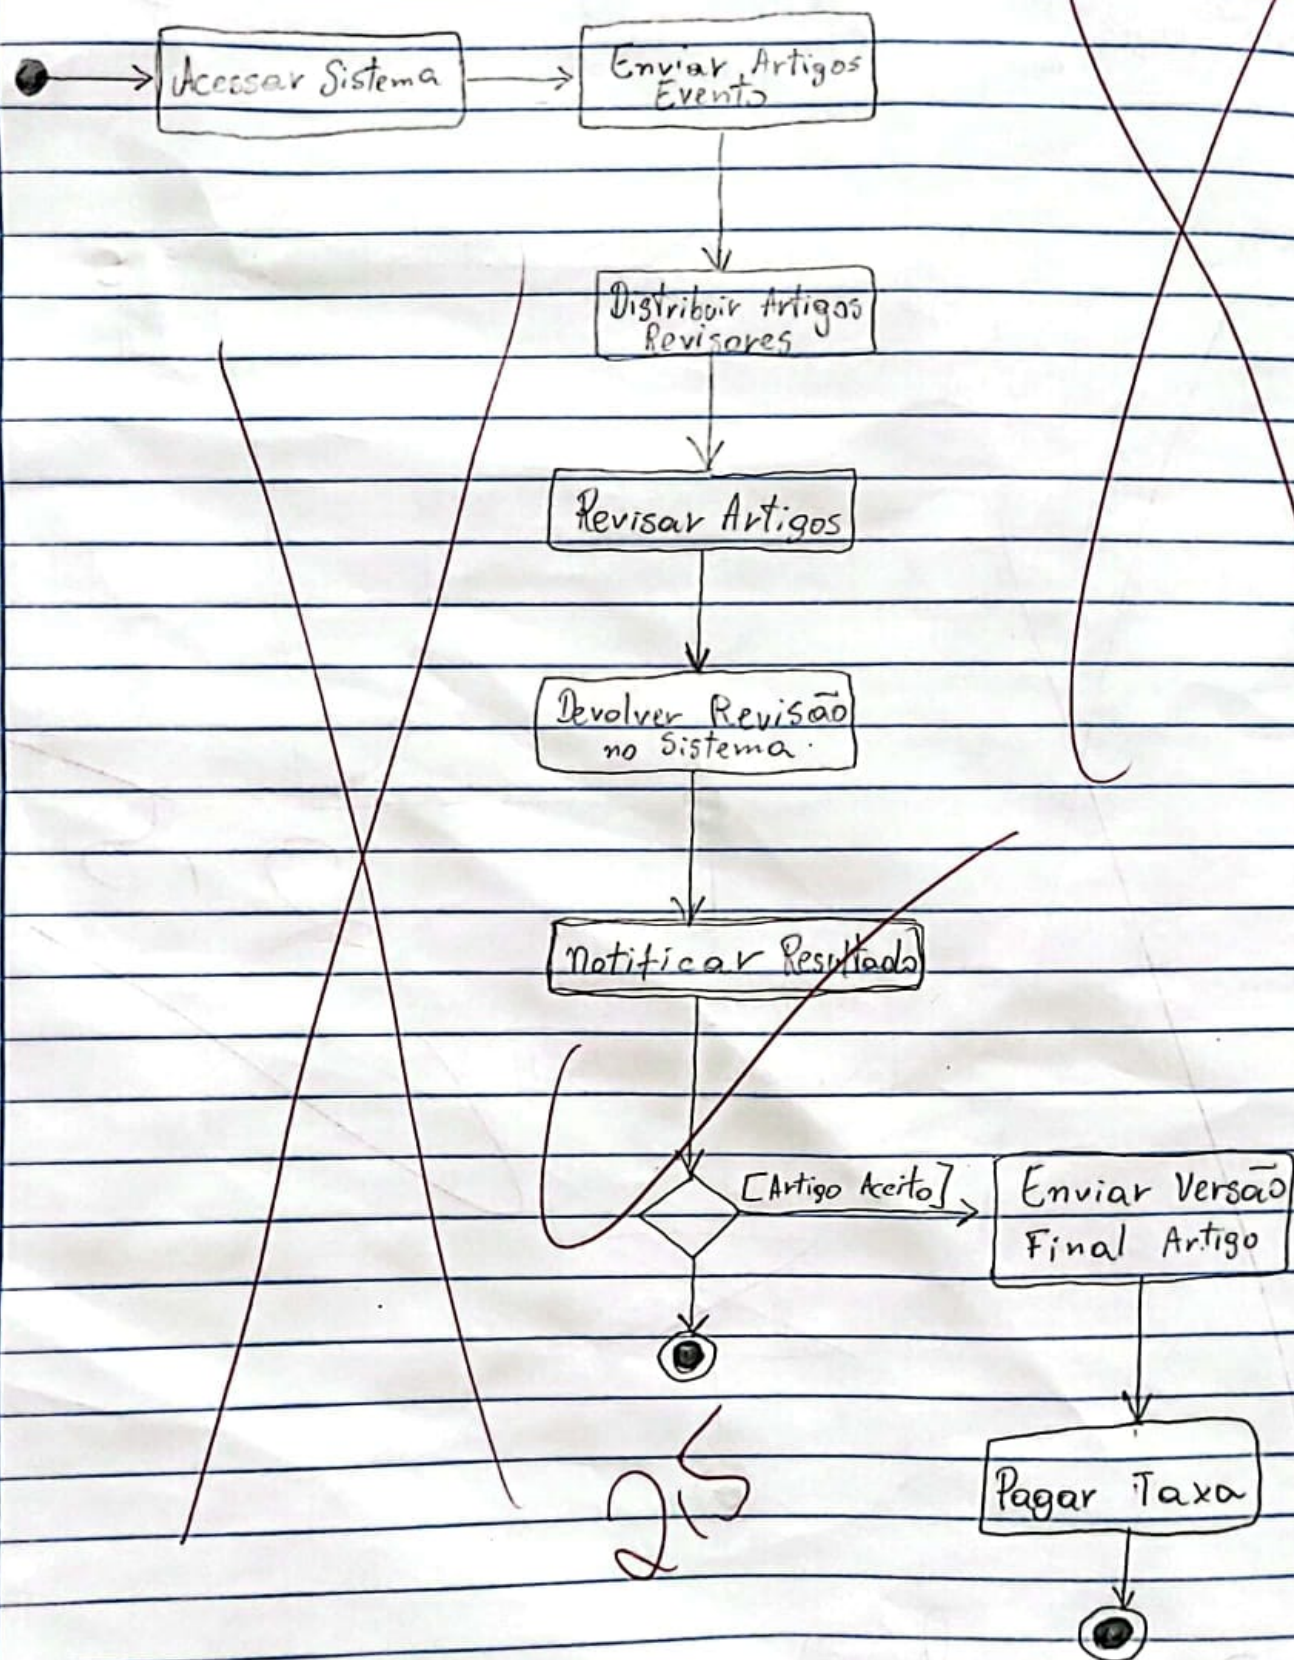 Acessar Sistema
Enviar Artigos
Evento
Distribuir Artigos
Revisores
Revisar Artigos
Devolver Revisão
no Sistema.
Notificar Resultado
[Artigo Aceito]
Enviar Versão
Final Artigo
Pagar Taxa
2,5